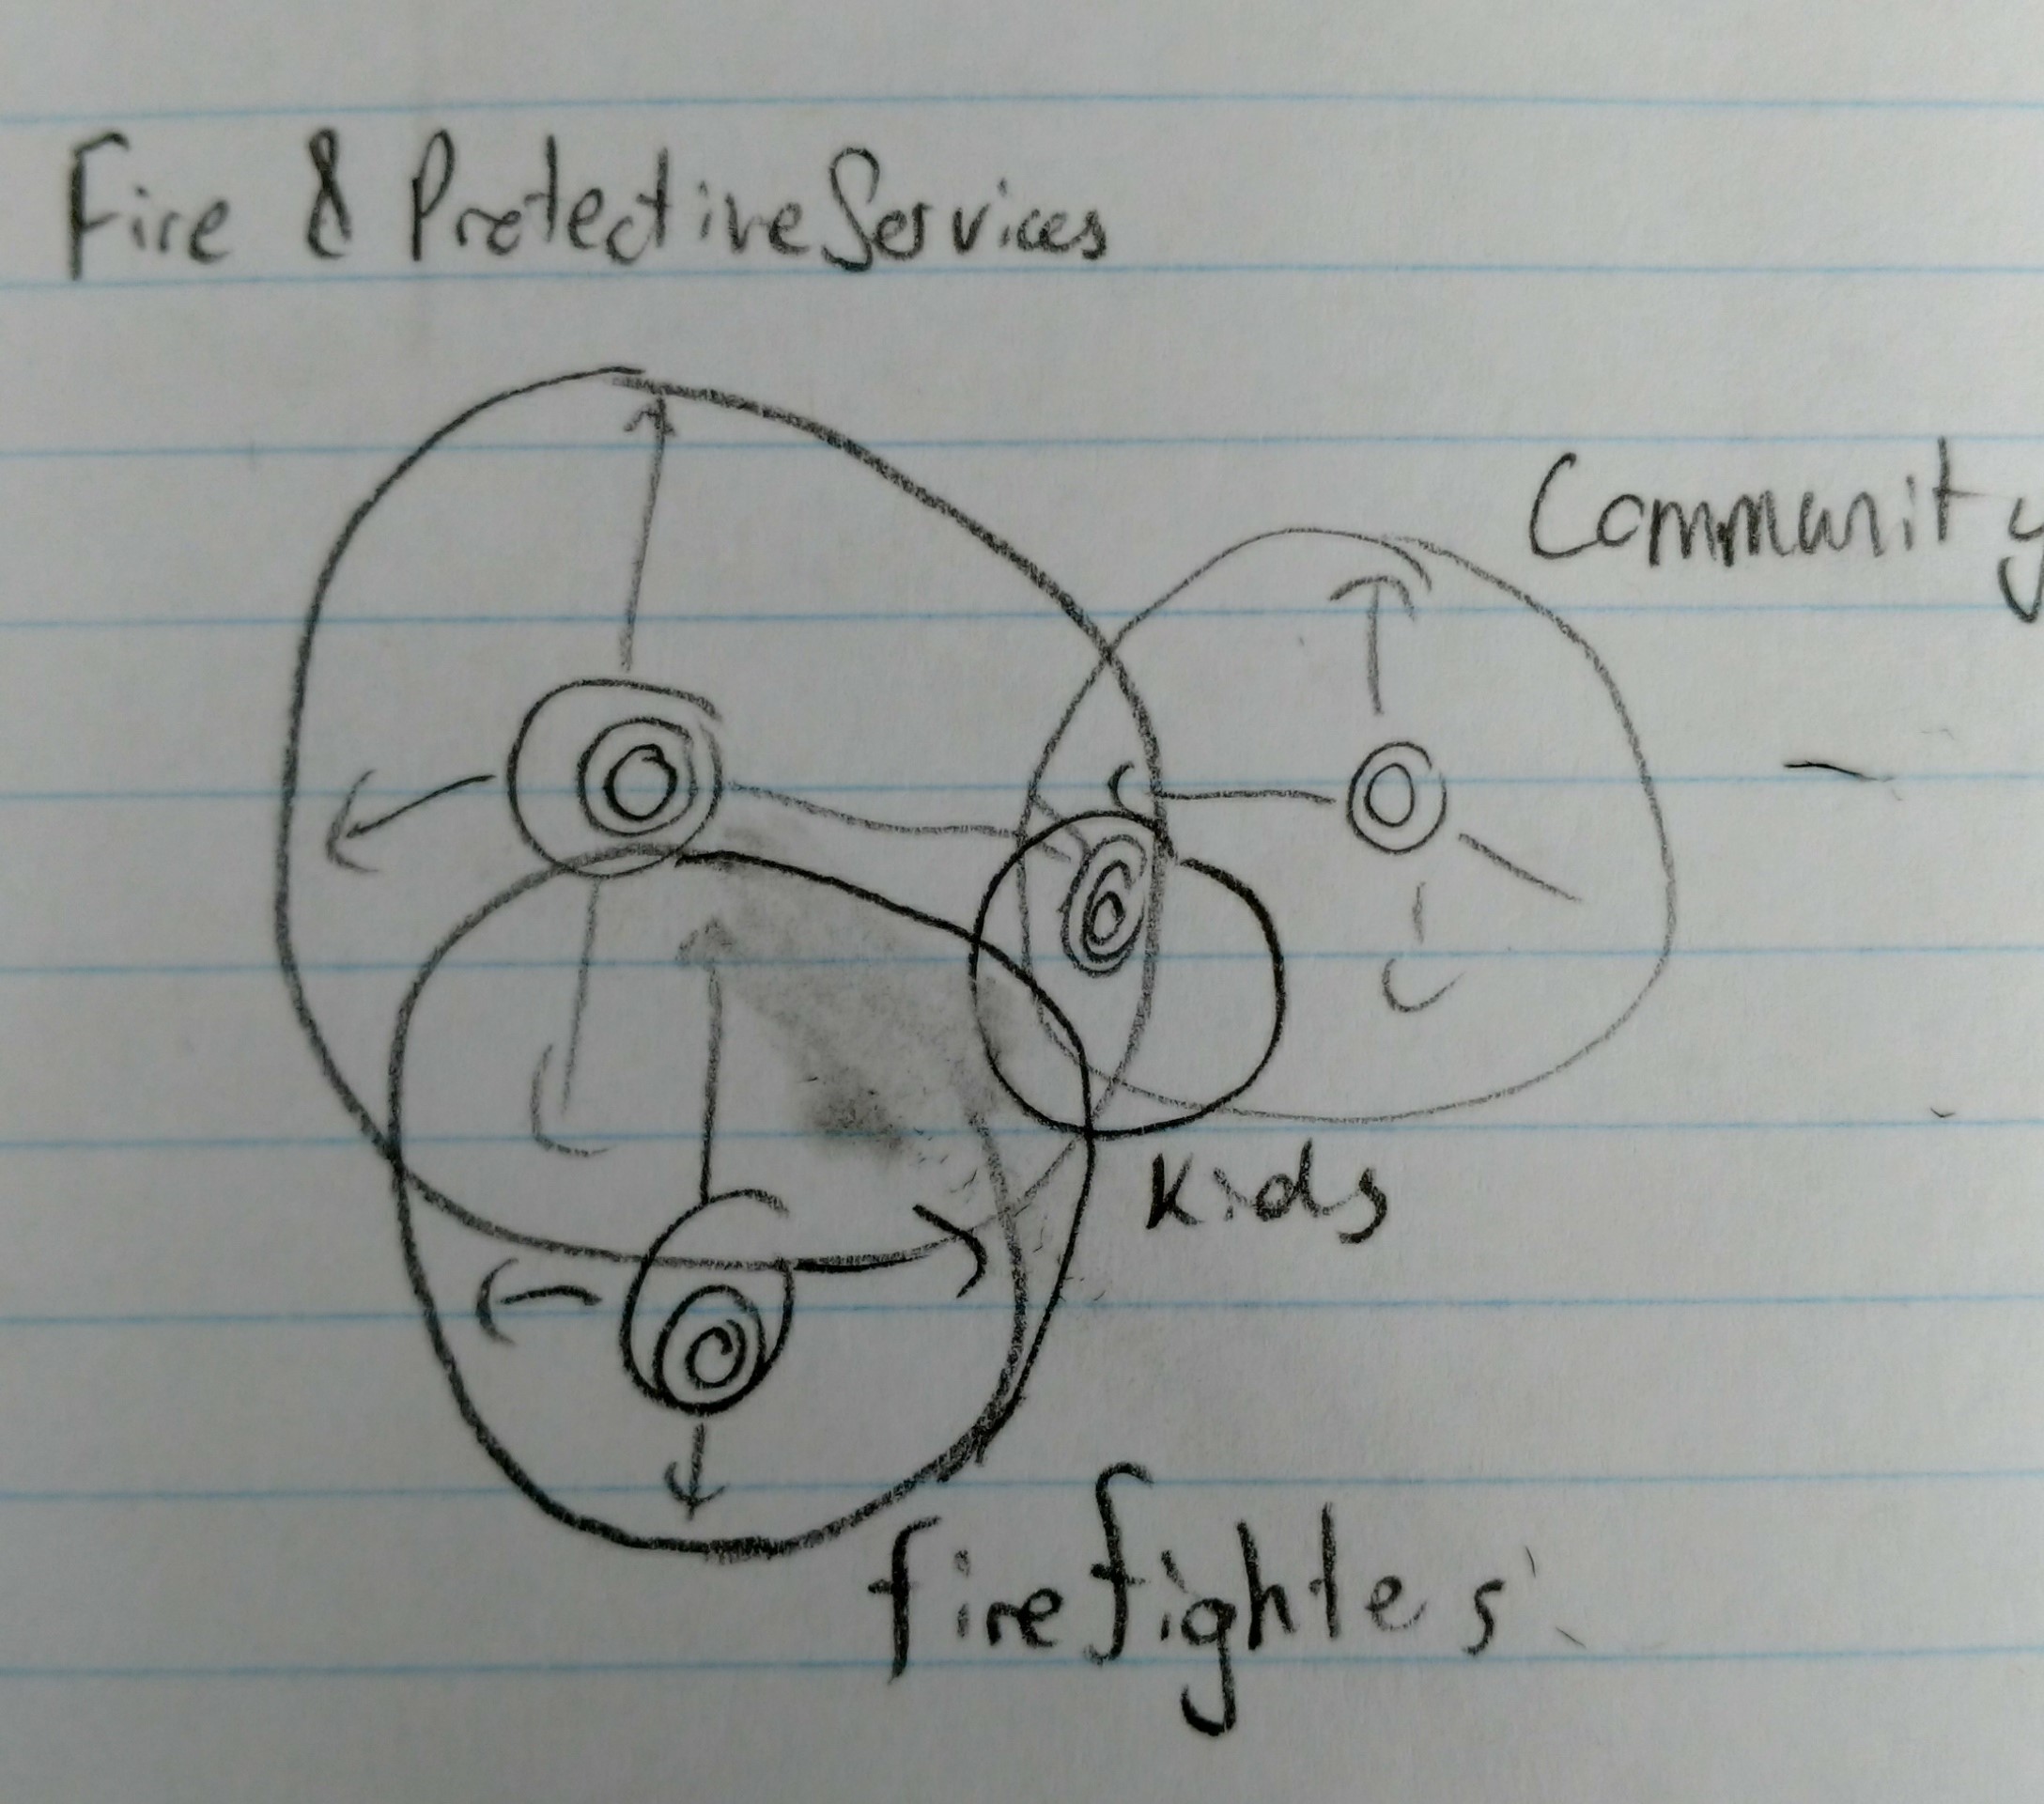 Fire & Protective Services
Community
Kids
firefightes